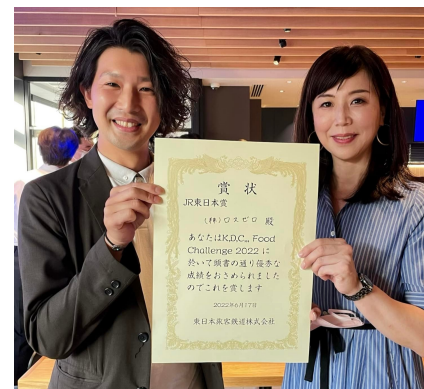 賞状
JR東日本賞
(株)ロスゼロ 殿
あなたはK,D,C,,, Food
Challenge 2022 に
於いて頭書の通り優秀な
成績をおさめられました
のでこれを賞します
2022年6月17日
東日本旅客鉄道株式会社